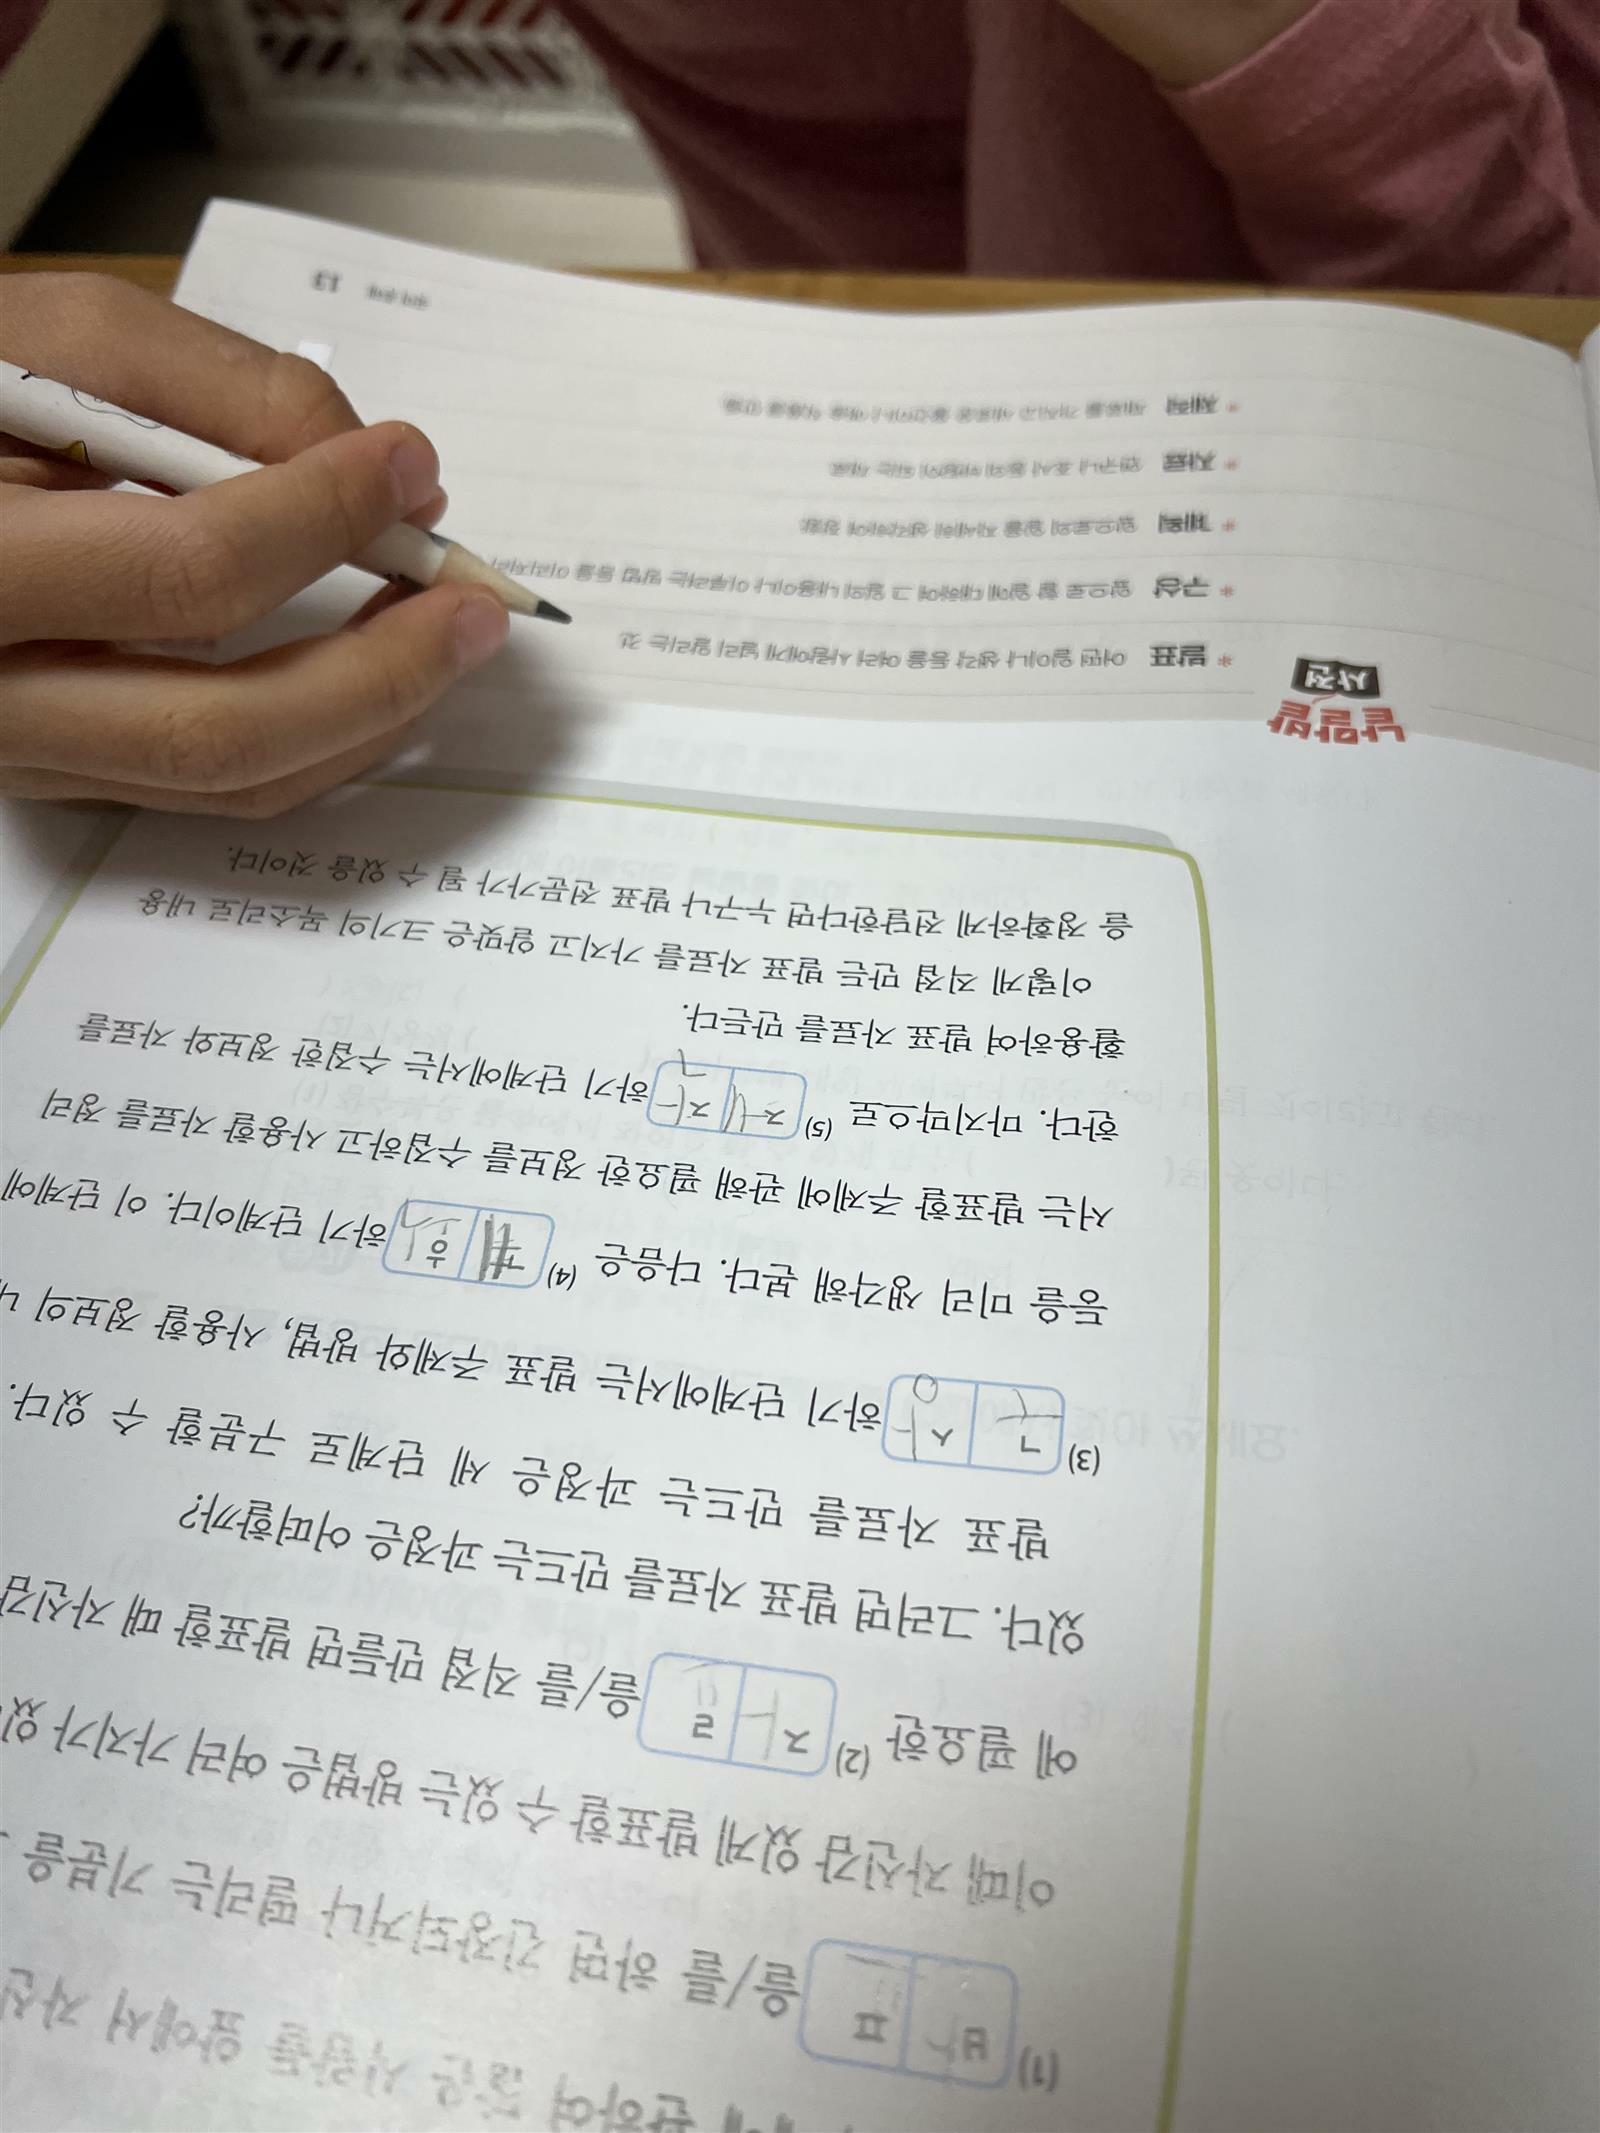 관하여 많은 사람들 앞에서 자신
(1) 발 표 을/를 하면 긴장되거나 떨리는 기분을
이때 자신감 있게 발표할 수 있는 방법은 여러 가지가 있
에 필요한 (2) 자 료 을/를 직접 만들면 발표할 때 자신감
있다. 그러면 발표 자료를 만드는 과정은 어떠할까?
발표 자료를 만드는 과정은 세 단계로 구분할 수 있다.
(3) 구 상 하기 단계에서는 발표 주제와 방법, 사용할 정보의 내
등을 미리 생각해 본다. 다음은 (4) 계 획 하기 단계이다. 이 단계에
서는 발표할 주제에 관해 필요한 정보를 수집하고 사용할 자료를 정리
한다. 마지막으로 (5) 제 작 하기 단계에서는 수집한 정보와 자료를
활용하여 발표 자료를 만든다.
이렇게 직접 만든 발표 자료를 가지고 알맞은 크기의 목소리로 내용
을 정확하게 전달한다면 누구나 발표 전문가가 될 수 있을 것이다.
낱말밭
사전
* 발표 어떤 일이나 생각 등을 여러 사람에게 널리 알리는 것
* 구상 앞으로 할 일에 대하여 그 일의 내용이나 이루려는 방법 등을 이리저리
* 계획 앞으로의 일을 자세히 생각하여 정함
* 자료 연구나 조사 등의 바탕이 되는 재료
* 제작 재료를 가지고 새로운 물건이나 예술 작품을 만듦
13